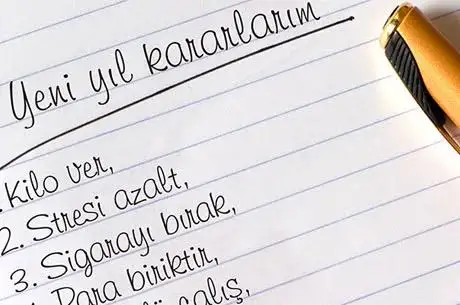 Yeni yıl kararlarım
Kilo ver,
2. Stresi azalt,
3. Sigarayı bırak,
Para biriktir,
çalış,